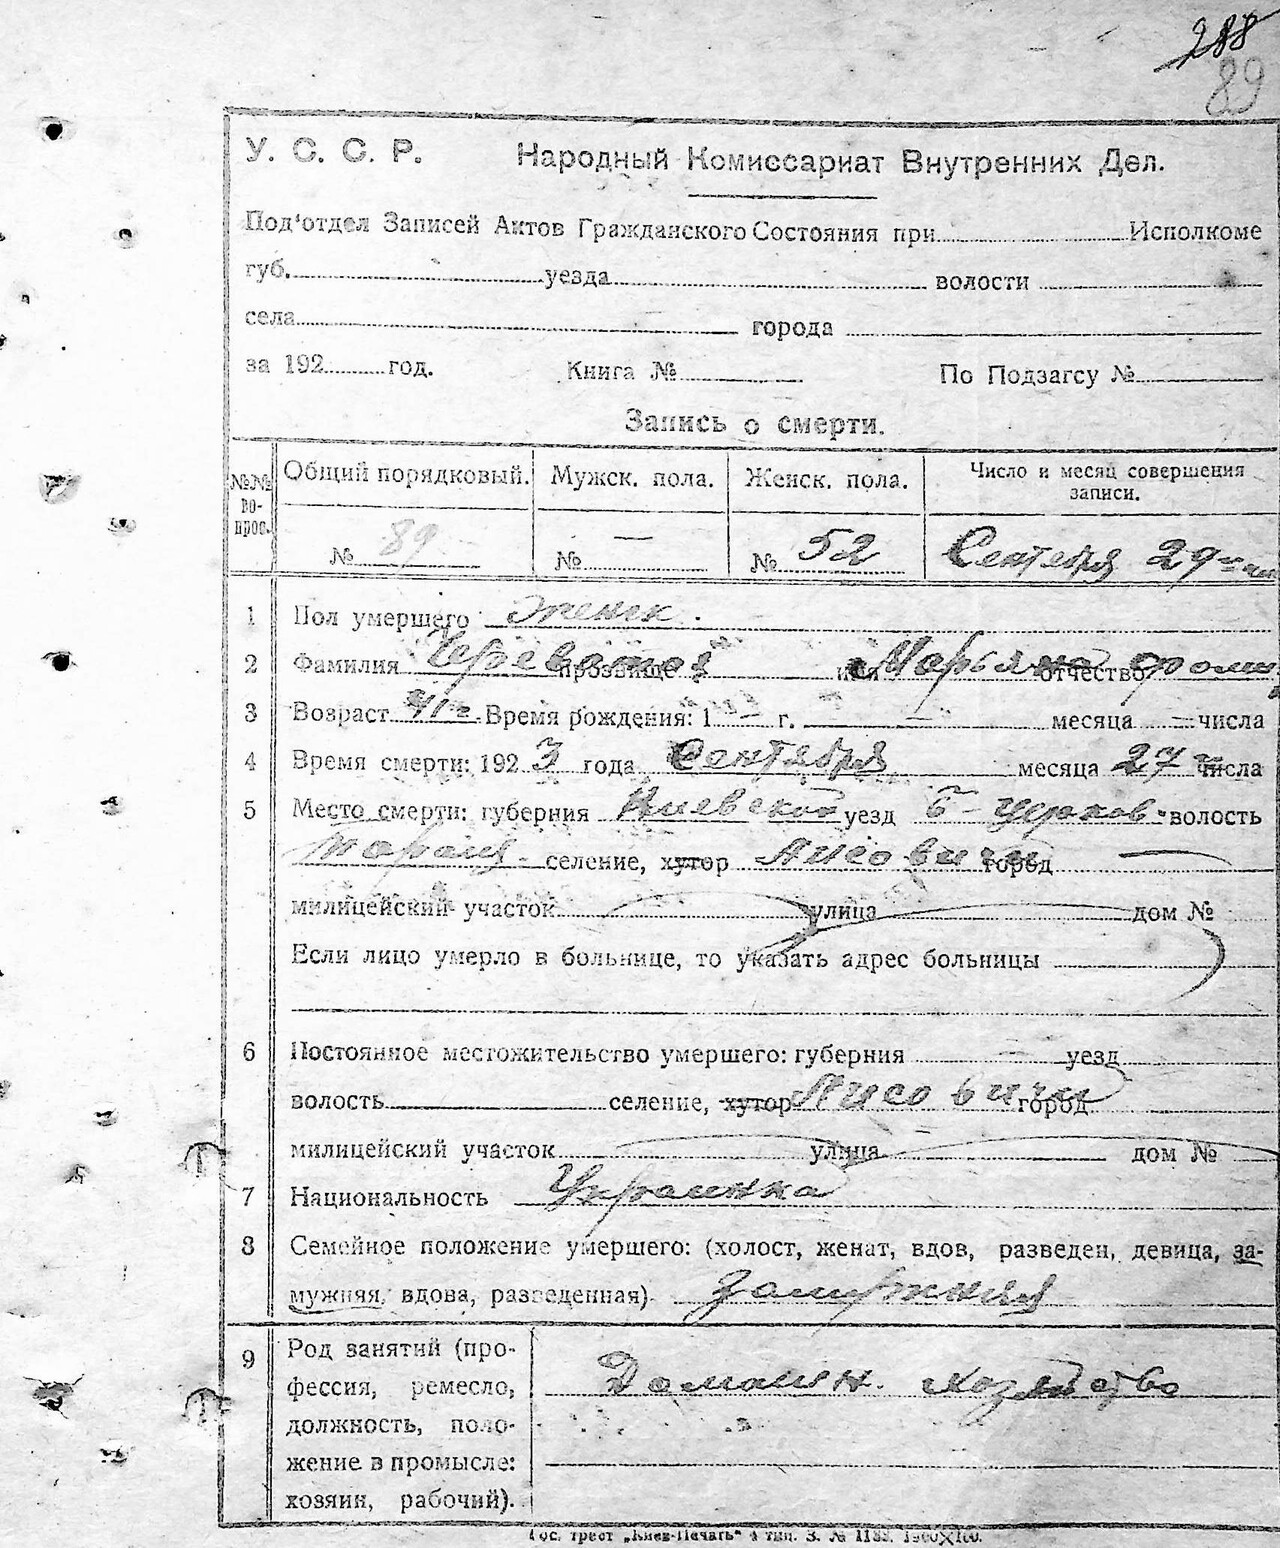 288
89
У. С. С. Р. Народный Комиссариат Внутренних Дел.
Под'отдел Записей Актов Гражданского Состояния при Исполкоме
губ. уезда волости
села города
за 192 год. Книга № По Подзагсу №
Запись о смерти.
№№ во- прос. Общий порядковый. Мужск. пола. Женск. пола. Число и месяц совершения записи.
№ 89 № — № 52 Сентября 29
1 Пол умершего женск.
2 Фамилия Череватая прозвище имя Марьяна отчество
3 Возраст 41 г. Время рождения: 1 — г. — месяца — числа
4 Время смерти: 1923 года Сентября месяца 27 числа
5 Место смерти: губерния Киевской уезд Б-Церков. волость
Таращ. селение, хутор Лисовичи город —
милицейский участок улица дом №
Если лицо умерло в больнице, то указать адрес больницы
6 Постоянное местожительство умершего: губерния — уезд
волость селение, хутор Лисовичи город
милицейский участок улица дом №
7 Национальность Украинка
8 Семейное положение умершего: (холост, женат, вдов, разведен, девица, за-
мужняя, вдова, разведенная) Замужняя
9 Род занятий (про-
фессия, ремесло, Домашн. хозяйство
должность, поло-
жение в промысле:
хозяин, рабочий).
Гос. трест „Киев-Печать" 4 тип. З. № 1188.